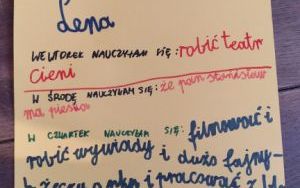 Lena
WE WTOREK NAUCZYŁAM SIĘ: robić teatr
cieni
W ŚRODĘ NAUCZYŁAM SIĘ: że pan Stanisław
ma pieska
W CZWARTEK NAUCZYŁAM SIĘ: filmować i
robić wywiady i dużo fajny-
i pracować z